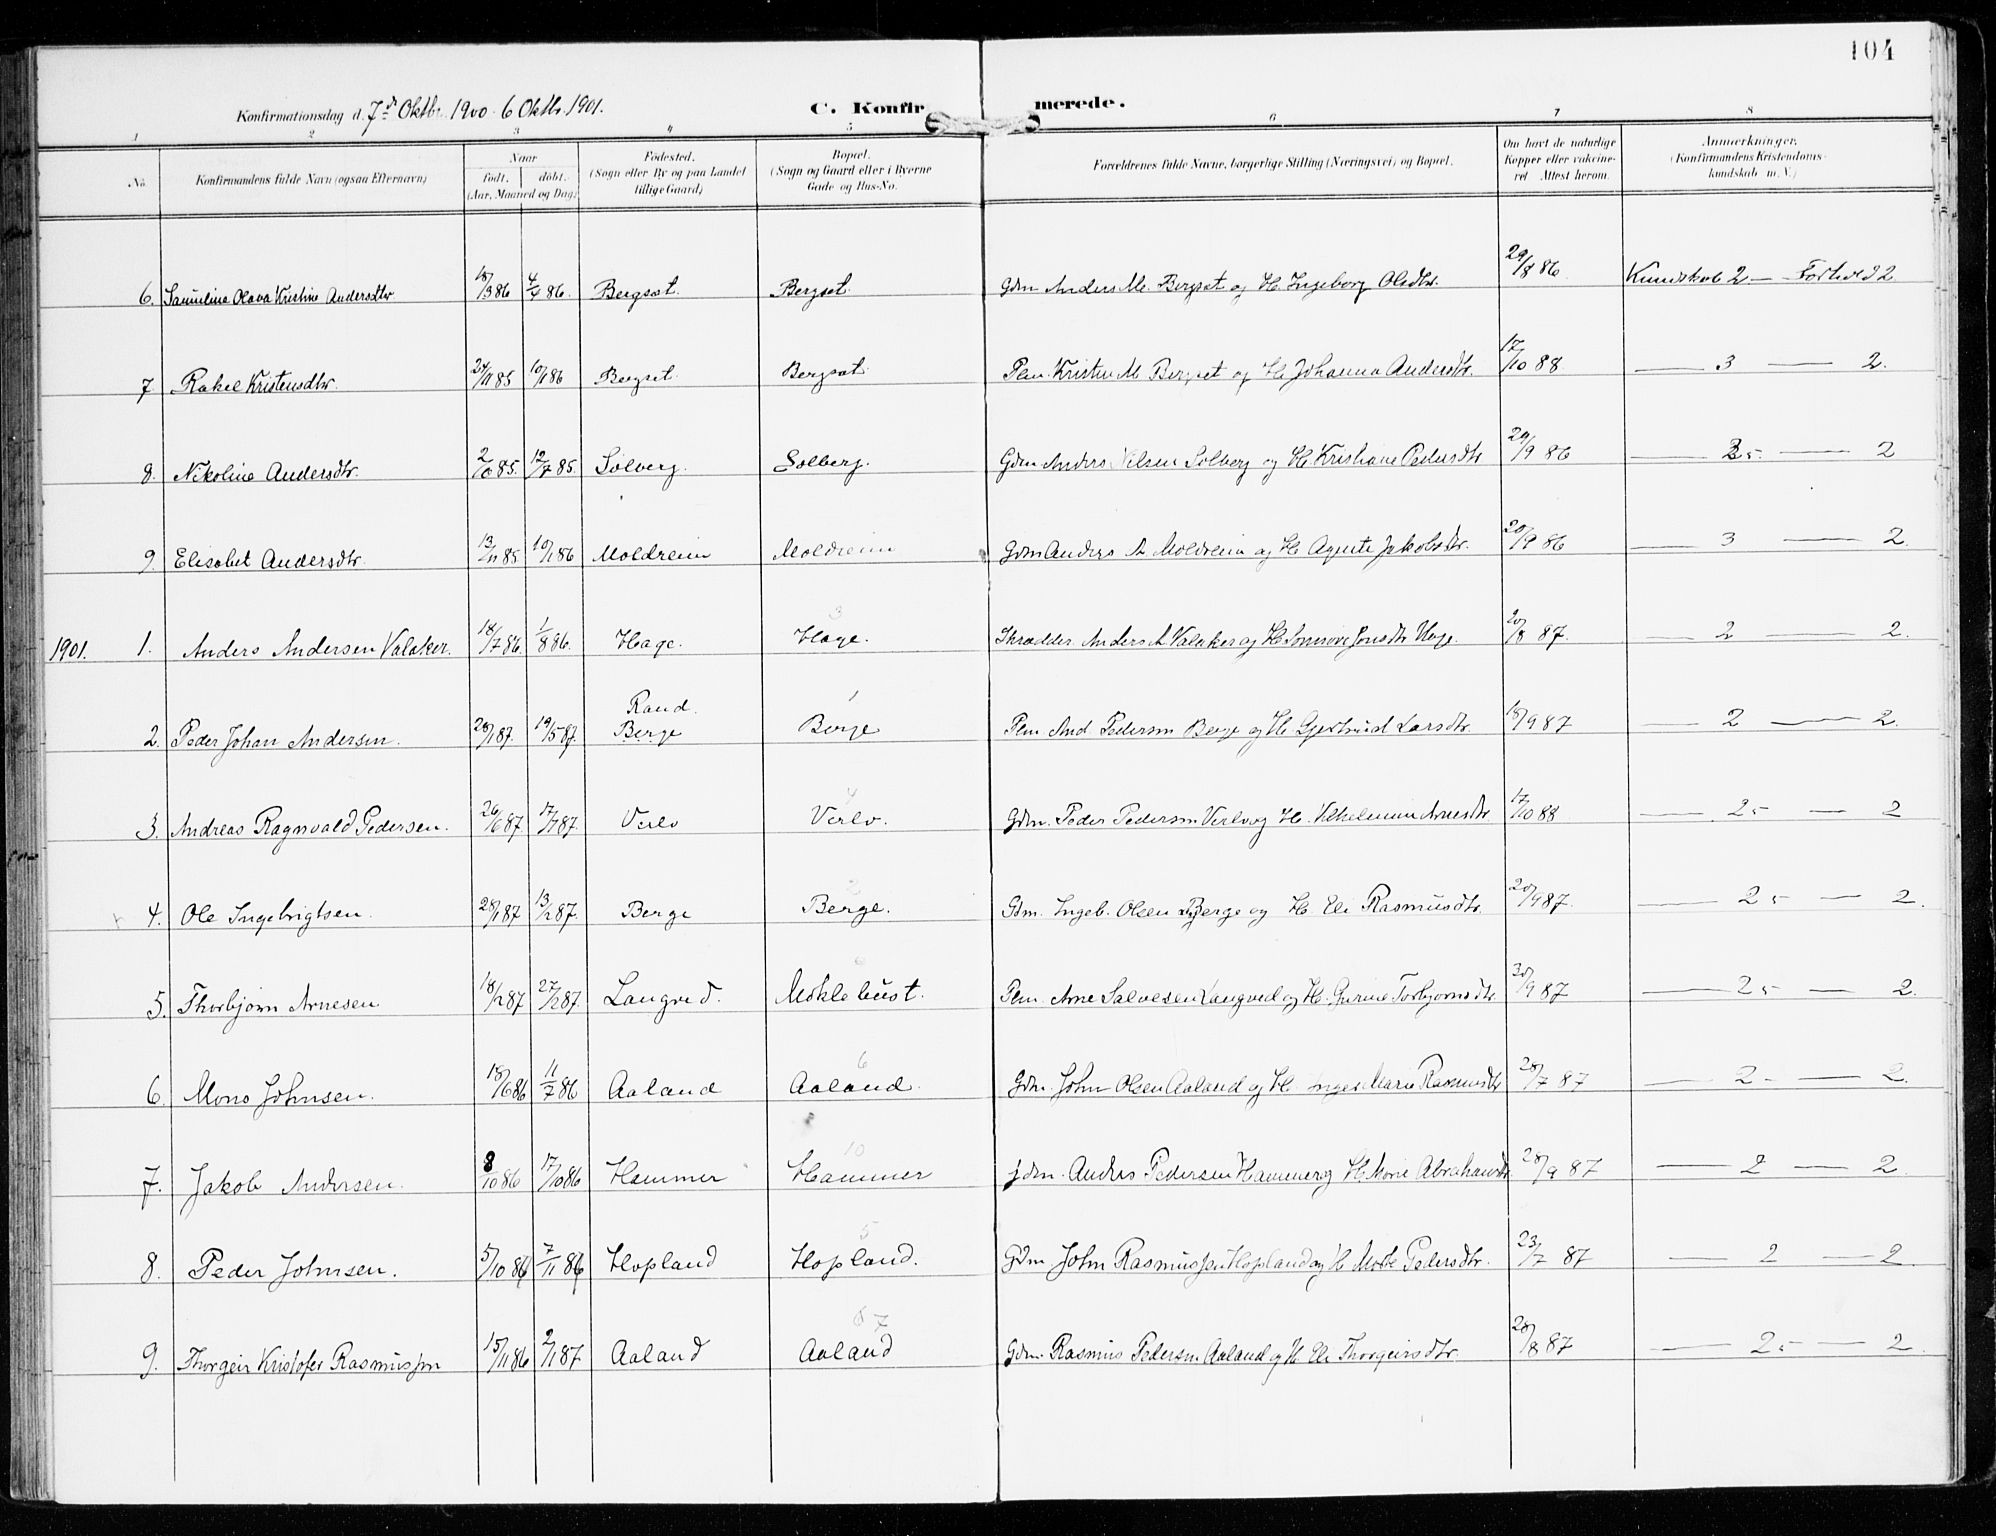 104
Konfirmationsdag d. 7de Oktbr. 1900 - 6 Oktbr. 1901.
C. Konfirmerede.
1 2 3 4 5 6 7 8
No. Konfirmandens fulde Navn (ogsaa Efternavn) Naar født. døbt. (Aar, Maaned og Dag) Fødested. (Sogn eller By og paa Landet tillige Gaard) Bopæl. (Sogn og Gaard eller i Byerne Gade og Hus-No. Forældrenes fulde Navne, borgerlige Stilling (Næringsvei) og Bopæl. Om havt de naturlige Kopper eller vakcineret Attest herom. Anmerkninger, (Konfirmandens Kristendomskundskab m. V.)
6. Samuline Olava Kristine Andersdtr 18/3 86 4/4 86. Bergset. Bergset. Gdm Anders M. Bergset og H. Ingeborg Olsdtr. 29/8 86. Kundskab 2 — Forhold 2
7 Rakel Kristensdtr. 24/11 85 10/1 86 Bergset. Bergset. Plm. Kristen M. Bergset og H. Johanna Andersdtr. 17/10 88 — 3 — 2.
8. Nikoline Andersdtr. 85. 12/7 85. Solberg. Solberg. Gdm Anders Nilsen Solberg og H. Kristiane Pedersdtr 29/9 86 — — 2
9. Elisabet Andersdtr. 13/11 85 10/1 86 Moldreim Moldreim Gdm Anders A Moldreim og H. Agnete Jakobsdtr. 20/9 86 — 3 — 2.
3
1901. 1. Anders Andersen Valaker. 18/7 86. 1/8 86. Hage. Hage. Skrædder Anders A Valaker og H. Jonsdtr Hage. 20/8 87. — 2 — 2.
Rand. 1
2. Peder Johan Andersen. 28/1 87. 19/5 87. Berge Berge Plm. And. Pedersen Berge og H. Gjertrud Larsdtr. 18/9 87 — 2 — 2.
4
3. Andreas Ragnvald Pedersen. 26/6 87. 17/7 87. Verlo Verlo. Gdm. Peder Pedersen Verlo og H. Arnesdtr 17/10 88 — 2- — 2
2
4. Ole Ingebrigtsen. 28/1 87 13/2 87. Berge Berge. Gdm. Ingeb. Olsen Berge og H. Eli Rasmusdtr. 20/9 87. — 2- — 2.
5. Thorbjørn Arnesen 18/1 87 27/2 87. Langved. Moklebust. Plm. Arne Salvesen Langved og H. Gurine Torbjørnsdtr. 30/9 87 — 2- — 2.
6
6. Mons Johnsen. 18/6 86 11/7 86 Aaland Aaland. Gdm. John Olsen Aaland og H. Inger Marie Rasmusdtr 28/7 87 — 2- — 2.
10
7. Jakob Andersen. 8/10 86 17/10 86 Hammer Hammer Gdm. Anders Pedersen Hammer og H. Marie Abrahamsdtr 28/9 87 — 2 — 2.
5
8. Peder Johnsen. 5/10 86 7/11 86 Hopland Hopland. Gdm John Rasmussen Hopland og H. Pedersdtr. 23/7 87 — 2 — 2.
7
9. Thorgeir Kristofer Rasmussen 15/11 86 2/1 87 Aaland Aaland Gdm. Rasmus Pedersen Aaland og H. Eli Thorgeirsdtr. 28/8 87 — 2- — 2